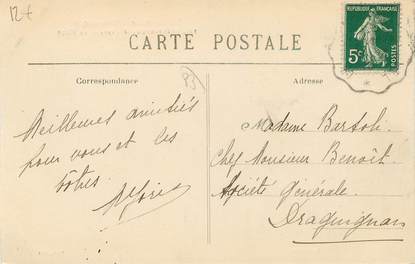 12€
RÉPUBLIQUE FRANÇAISE
5c
CARTE POSTALE
Correspondance
83
Adresse
Meilleures amitiés
pour vous et les
vôtres
Madame Bartoli
Chez Monsieur Benoît
Société générale
Draguignan